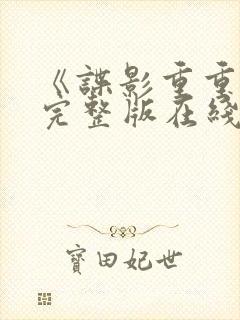 《諜影重重
完整版在綫
寶田妃世